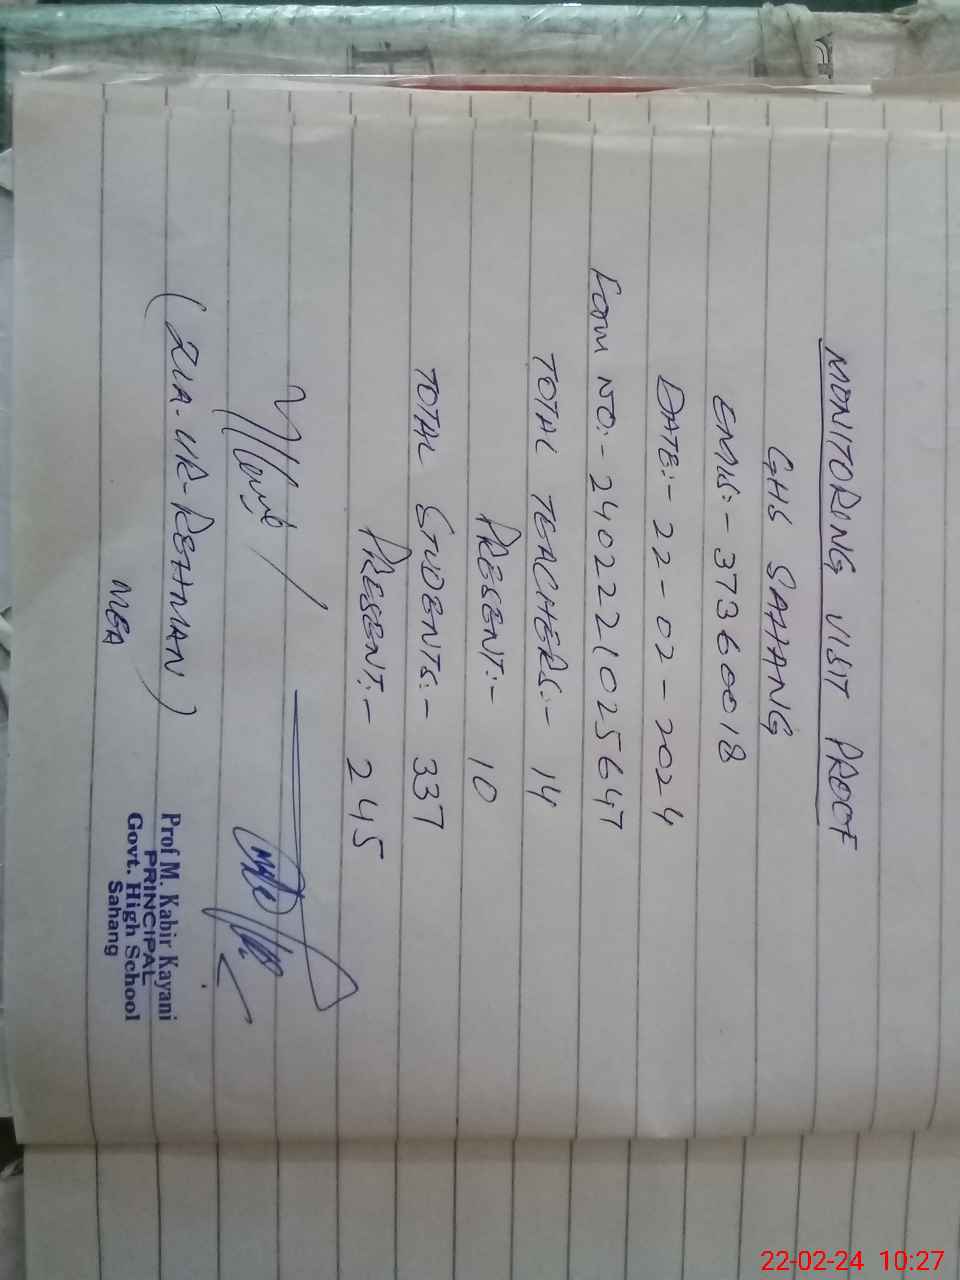 MONITORING VISIT PROOF
GHS SAHANG
EMIS:- 37360018
DATE:- 22-02-2024
FORM NO:- 2402221025647
TOTAL TEACHERS:- 14
PRESENT:- 10
TOTAL STUDENTS:- 337
PRESENT:- 245
(ZIA-UR-REHMAN)
MEA
Prof M. Kabir Kayani
PRINCIPAL
Govt. High School
Sahang
22-02-24 10:27